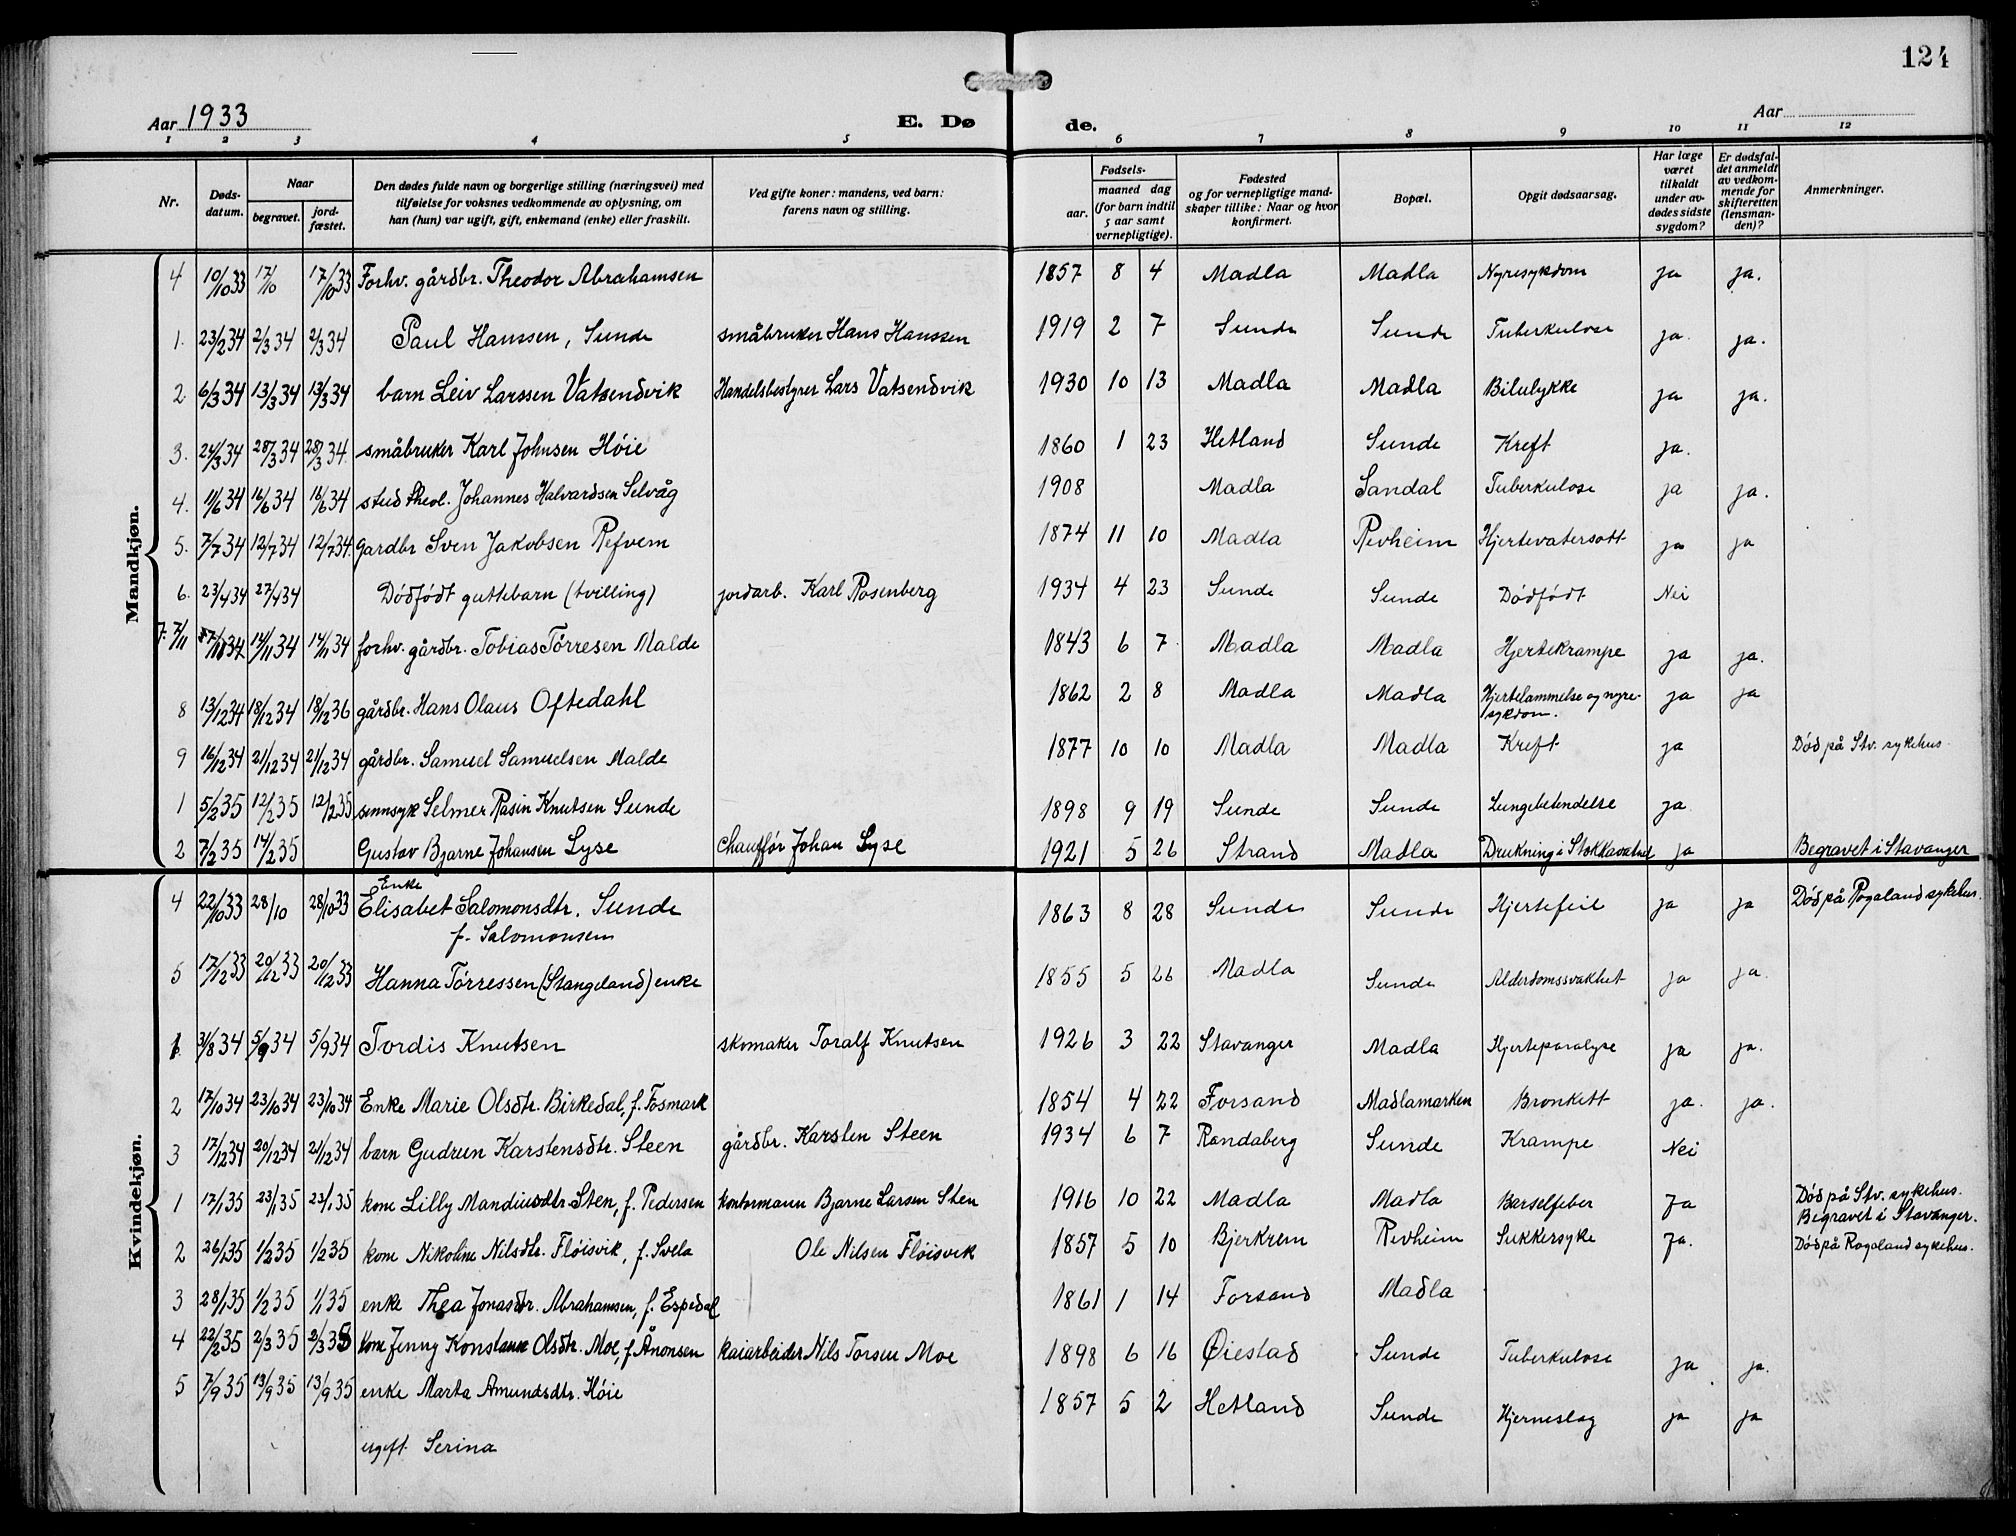 124
Aar 1933 E. Dø de. Aar
1 2 3 4 5 6 7 8 9 10 11 12
Nr. Døds-datum. Naar begravet. jord-fæstet. Den dødes fulde navn og borgerlige stilling (næringsvei) med tilføielse for voksnes vedkommende av oplysning, om han (hun) var ugift, gift, enkemand (enke) eller fraskilt. Ved gifte koner: mandens, ved barn: farens navn og stilling. Fødsels- aar. maaned dag (for barn indtil 5 aar samt vernepligtige). Fødested og for vernepligtige mand-skaper tillike: Naar og hvor konfirmert. Bopæl. Opgit dødsaarsag. Har læge været tilkaldt under av-dødes sidste sygdom? Er dødsfal-det anmeldt av vedkom-mende for skifteretten (lensman-den)? Anmerkninger.
Mandkjøn.
4 10/10 33 17/10 17/10 33 Forhv. gårdbr. Theodor Abrahamsen 1857 8 4 Madla Madla Nyresykdom ja ja.
1. 23/2 34 2/3 34 2/3 34 Paul Hanssen, Sunde småbruker Hans Hanssen 1919 2 7 Sunde Sunde Tuberkulose ja. ja.
2 6/3 34 13/3 34 13/3 34 barn Leiv Larssen Vatsendvik Handelsbestyrer Lars Vatsendvik 1930 10 13 Madla Madla Bilulykke ja ja.
3. 24/3 34 28/3 34 28/3 34. småbruker Karl Johnsen Høie 1860 1 23 Hetland Sunde Kreft ja.
4. 11/6 34 16/6 34 16/6 34 stud theol. Johannes Halvardsen Selvåg 1908 Madla Sandal Tuberkulose ja ja.
5. 7/7 34 12/7 34 12/7 34. Gardbr Sven Jakobsen Refvem 1874 11 10 Madla Revheim Hjertevatersott ja ja
6. 23/4 34 27/4 34 Dødfødt guttebarn (tvilling) jordarb. Karl Rosenberg 1934 4 23 Sunde Sunde Dødfødt Nei
7. 7/11 7/11 34 14/11 34 14/11 34 forhv. gårdbr. Tobias Tørresen Malde 1843 6 7 Madla Madla Hjertekrampe ja ja.
8 13/12 34 18/12 34 18/12 36 gårdbr. Hans Olaus Oftedahl 1862 2 8 Madla Madla Hjertelammelse og nyre-sykdom. ja ja
9 16/12 34 21/12 34 21/12 34 gårdbr. Samuel Samuelsen Malde 1877 10 10 Madla Madla Kreft ja Død på Stv. sykehus.
1 5/2 35 12/2 35 12/2 35 sinnsyk Selmer Rasin Knutsen Sunde 1898 9 19 Sunde Sunde Lungebetendelse ja.
2 7/2 35 14/2 35 Gustav Bjarne Johansen Lyse Chauffør Johan Lyse 1921 5 26 Strand Madla Drukning i Stokkavatnet ja Begravet i Stavanger
Kvindekjøn.
4 22/10 33 28/10 28/10 33 Enke Elisabet Salomonsdtr. Sunde 1863 8 28 Sunde Sunde Hjertefeil ja ja Død på Rogaland sykehus.
f. Salomonsen
5 17/12 33 20/12 33 20/12 33 Hanna Tørressen (Stangeland) enke 1855 5 26 Madla Sunde Alderdomssvakhet ja ja.
1. 31/8 34 5/9 34 5/9 34 Tordis Knutsen skomaker Toralf Knutsen 1926 3 22 Stavanger Madla Hjerteparalyse ja ja.
2 17/10 34 23/10 34 23/10 34 Enke Marie Olsdtr. Birkedal, f. Fosmark 1854 4 22 Forsand Madlamarken Bronkett ja. ja.
3 17/12 34 20/12 34 21/12 34 barn Gudrun Karstensdtr. Steen gårdbr. Karsten Steen 1934 6 7 Randaberg Sunde Krampe Nei
1 17/1 35 23/1 35 23/1 35 kone Lilly Mandiusdtr Sten, f. Pedersen kontormann Bjarne Larsen Sten 1916 10 22 Madla Madla Barselfeber Ja Død på Stv. sykehus. Begravet i Stavanger.
2 26/1 35 1/2 35 1/2 35 kone Nikoline Nilsdtr. Fløisvik, f. Svela Ole Nilsen Fløisvik 1857 5 10 Bjerkrem Revheim Sukkersyke Ja. Død på Rogaland sykehus.
3 28/1 35 1/2 35 1/1 35 enke Thea Jonasdtr. Abrahamsen, f. Espedal 1861 1 14 Forsand Madla
4 22/2 35 2/3 35 2/3 35 kone Jenny Konstanse Olsdtr. Moe, f. Ånonsen kaiarbeider Nils Torsen Moe 1898 6 16 Øiestad Sunde Tuberkulose ja ja.
5 7/9 35 13/9 35 13/9 35 enke Marta Amundsdtr. Høie 1857 5 2 Hetland Sunde Hjerneslag ja ja
ugift Serina